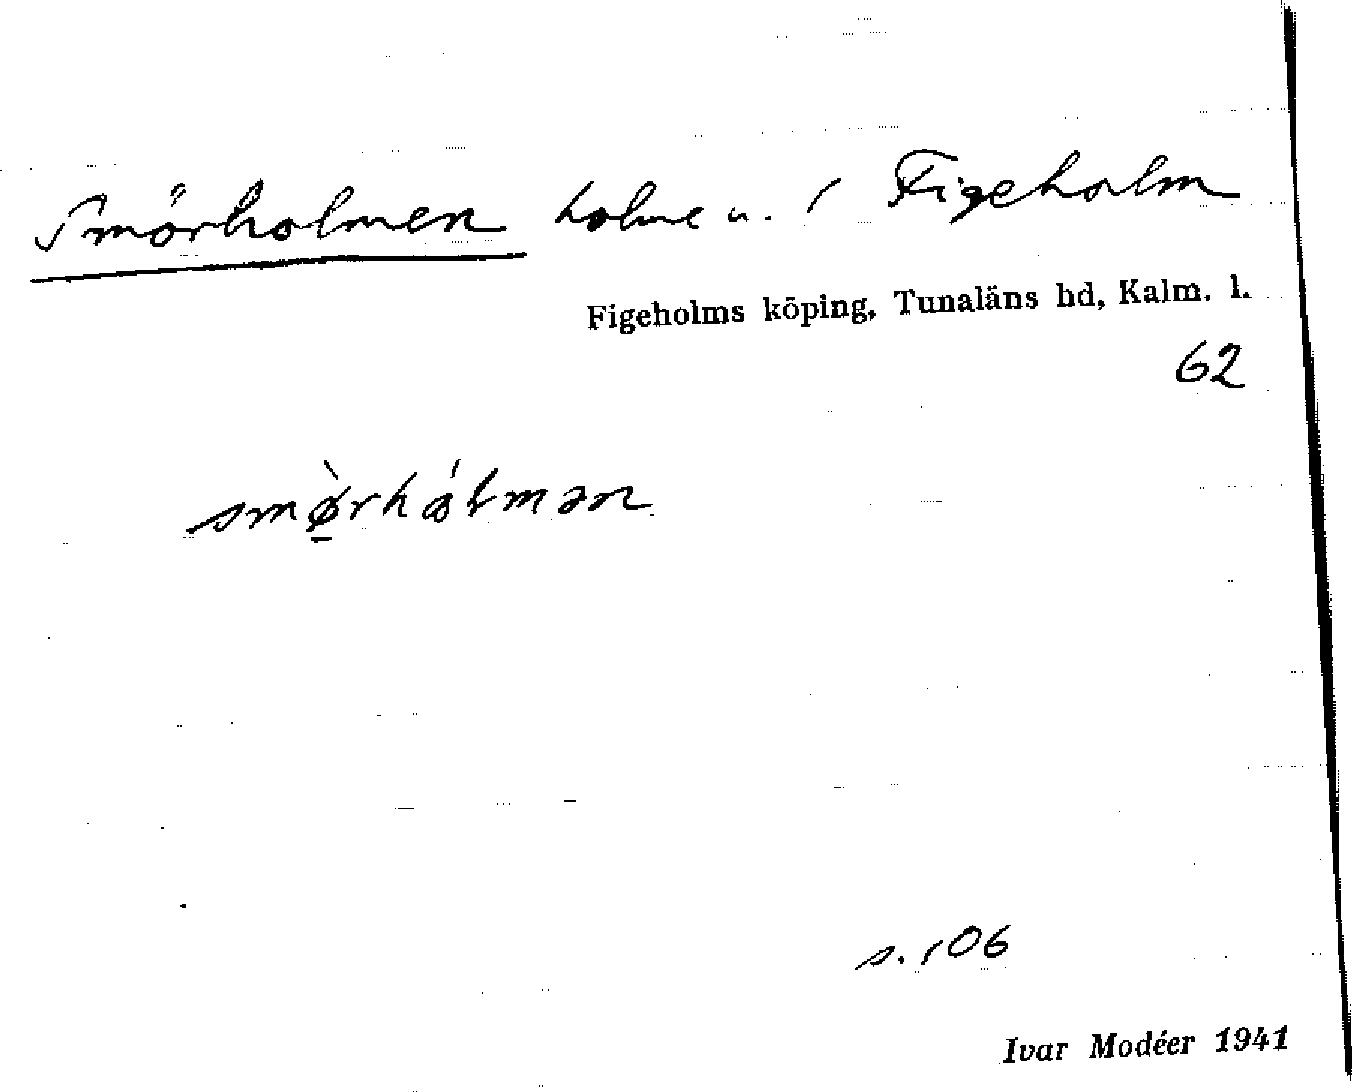 Smörholmen holme u. 1 Figeholm
Figeholms köping, Tunaläns hd, Kalm. l.
62
smø̠̀rhålmən
s. 106
Ivar Modéer 1941